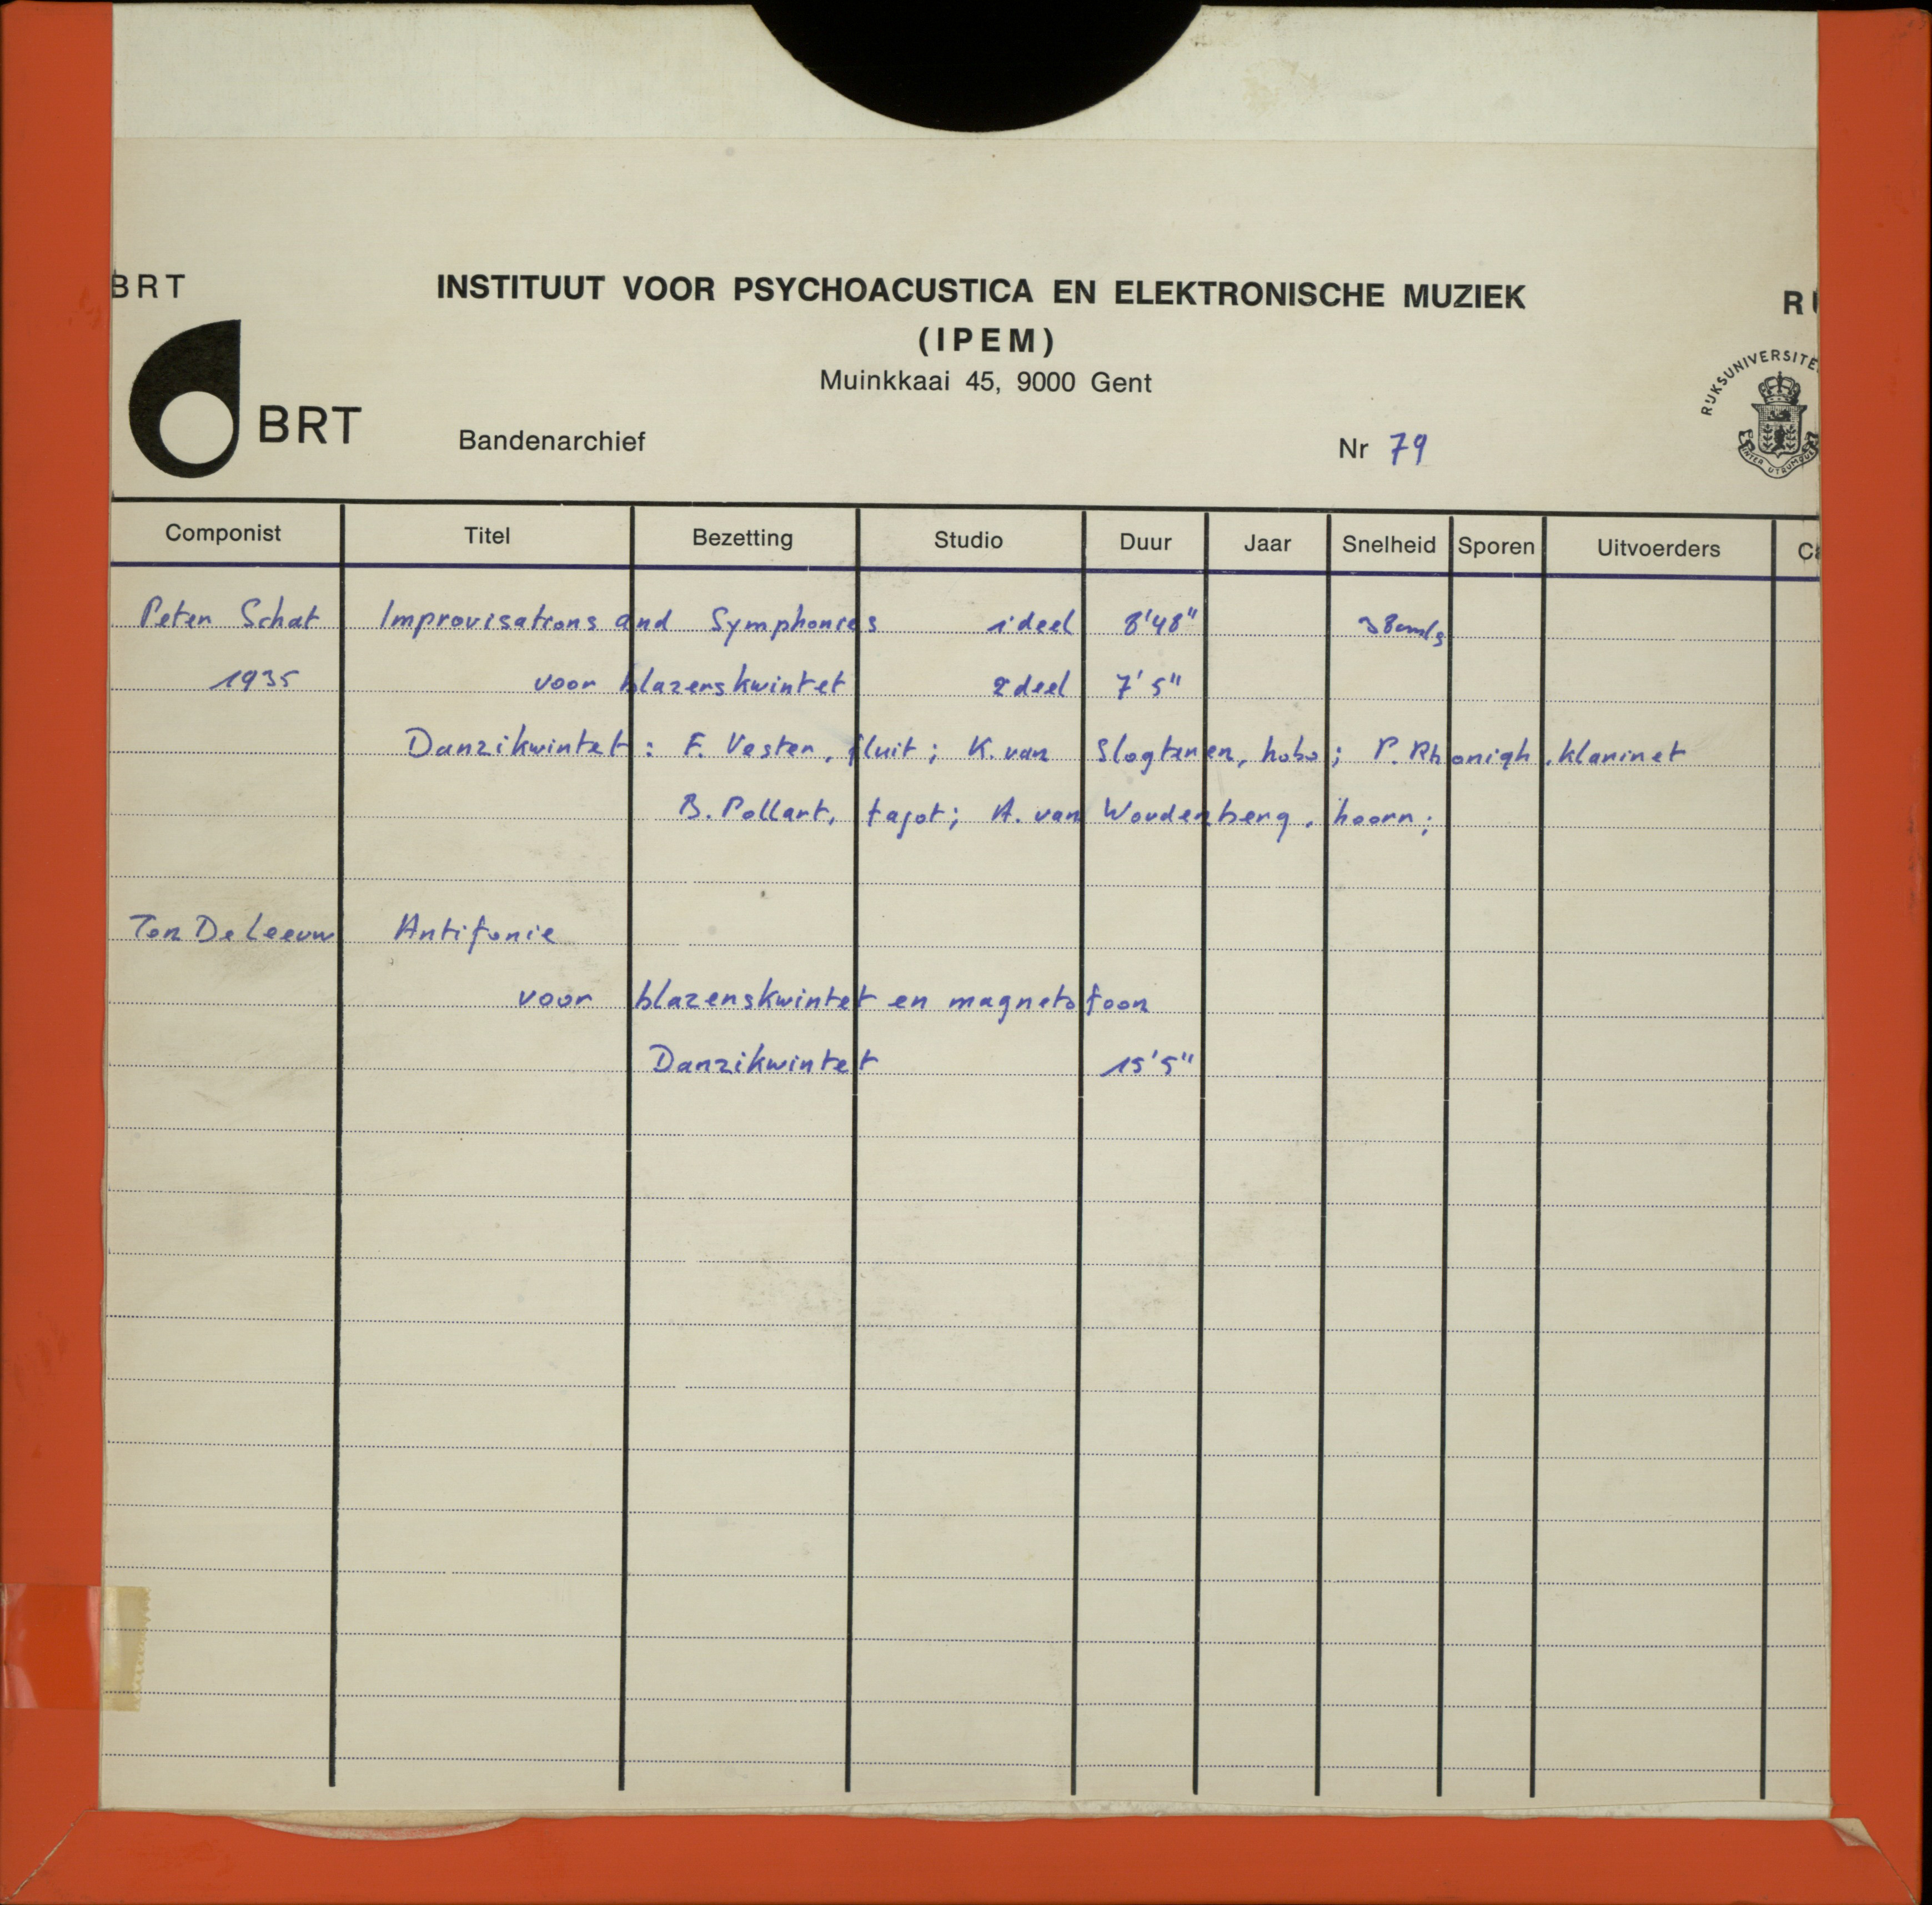 BRT INSTITUUT VOOR PSYCHOACUSTICA EN ELEKTRONISCHE MUZIEK RU
(IPEM)
Muinkkaai 45, 9000 Gent
RIJKSUNIVERSITE
INTER UTRUMQUE
BRT Bandenarchief Nr 79
Componist Titel Bezetting Studio Duur Jaar Snelheid Sporen Uitvoerders Ca
Peter Schat Improvisations and Symphonies 1 deel 8'48" 38cm/s
1935 voor blazerskwintet 2 deel 7'5"
Danzikwintet: F. Vester, fluit; K. van Slogteren, hobo; P. Rhonigh, klarinet
B. Pollart, fagot; A. van Woudenberg, hoorn;
Ton De Leeuw Antifonie
voor blazerskwintet en magnetofoon
Danzikwintet 15'5"